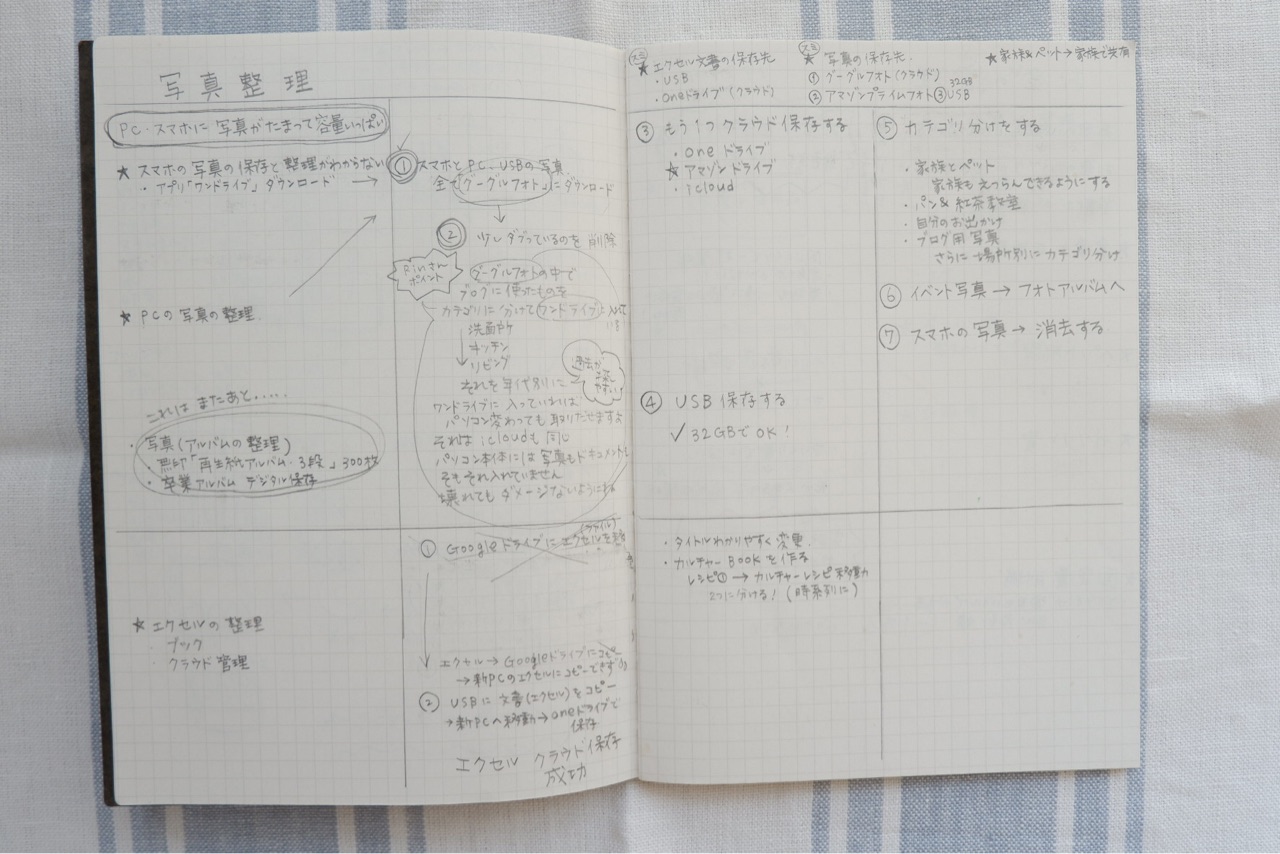 写真整理
PC・スマホに写真がたまって容量いっぱい
★ スマホの写真の保存と整理がわからない
・アプリ「ワンドライブ」ダウンロード →
★ PCの写真の整理.
これは またあと・・・・・・
・写真(アルバムの整理)
・無印「再生紙アルバム・3段」300枚
・卒業アルバム デジタル保存
★ エクセルの整理
・ブック
・クラウド管理
① スマホとPC、USBの写真
全て「グーグルフォト」にダウンロード
② 少しダブっているのを削除
Rinさん
ポイント
グーグルフォトの中で
ブログに使ったものを
カテゴリに分けてワンドライブに
洗面所
キッチン
リビング
過去が
それを年代別に
ワンドライブに入っていれば
パソコン変わっても取りだせますよ
それは icloudも同じ
パソコン本体には写真もドキュメントも
そもそも入れていません
壊れてもダメージないようにね
① Googleドライブにエクセルを
エクセル→Googleドライブにコピー
→新PCのエクセルにコピーできず
② USBに文書(エクセル)をコピー
→新PCへ移動→oneドライブで
保存
エクセル クラウド保存
成功
★ エクセル文書の保存先
・USB
・Oneドライブ(クラウド)
★ 写真の保存先.
① グーグルフォト(クラウド)
② アマゾンプライムフォト ③ USB
32GB
★ 家族&ペット→家族で共有
③ もう1つクラウド保存する
・one ドライブ
★ アマゾンドライブ
・icloud
④ USB保存する
✓ 32GBでOK!
・タイトルわかりやすく変更.
・カルチャーBOOKを作る
レシピ① → カルチャーレシピ移動
2つに分ける!(時系列に)
⑤ カテゴリ分けをする
・家族とペット
家族もえつらんできるようにする
・パン&紅茶教室
・自分のお出かけ
・ブログ用写真
さらに場所別にカテゴリ分け
⑥ イベント写真→フォトアルバムへ
⑦ スマホの写真→消去する